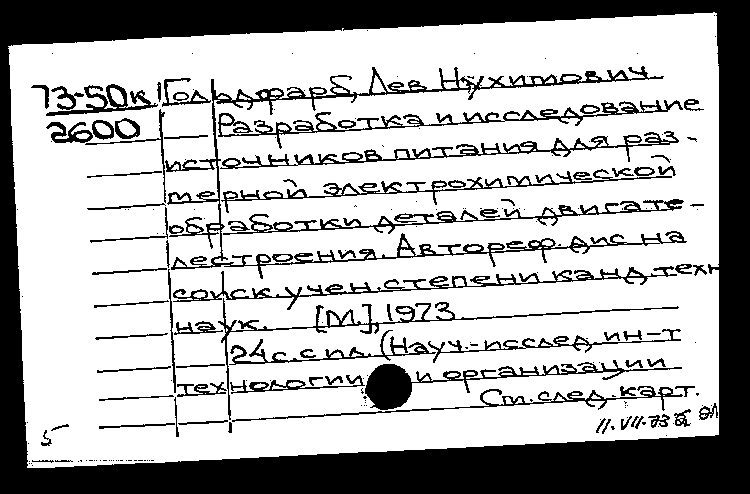 73-50к Гольдфарб, Лев Нухимович
2600 Разработка и исследование
источников питания для раз-
мерной электрохимической
обработки деталей двигате-
лестроения. Автореф. дис на
соиск. учен. степени канд. техн
наук. [М.], 1973.
24 с. с ил. (Науч.-исслед. ин-т
технологии и организации
См. след. карт.
5 11.VII.73